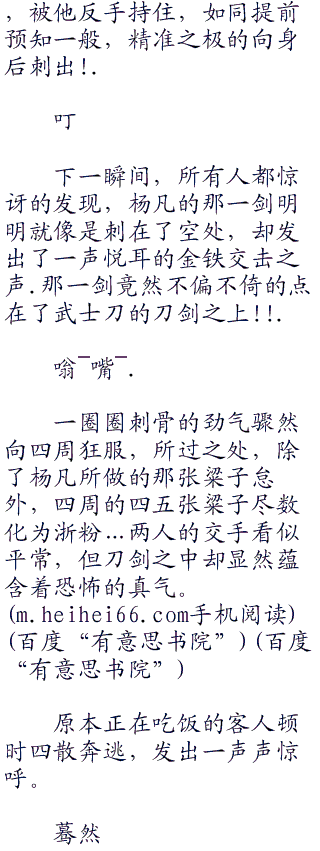 ，被他反手持住，如同提前
预知一般，精准之极的向身
后刺出!.
叮
下一瞬间，所有人都惊
讶的发现，杨凡的那一剑明
明就像是刺在了空处，却发
出了一声悦耳的金铁交击之
声.那一剑竟然不偏不倚的点
在了武士刀的刀剑之上!!.
嗡¯嘴¯.
一圈圈刺骨的劲气骤然
向四周狂服，所过之处，除
了杨凡所做的那张梁子怠
外，四周的四五张梁子尽数
化为浙粉…两人的交手看似
平常，但刀剑之中却显然蕴
含着恐怖的真气。
(m.heihei66.com手机阅读)
(百度“有意思书院”)(百度
“有意思书院”)
原本正在吃饭的客人顿
时四散奔逃，发出一声声惊
呼。
蓦然